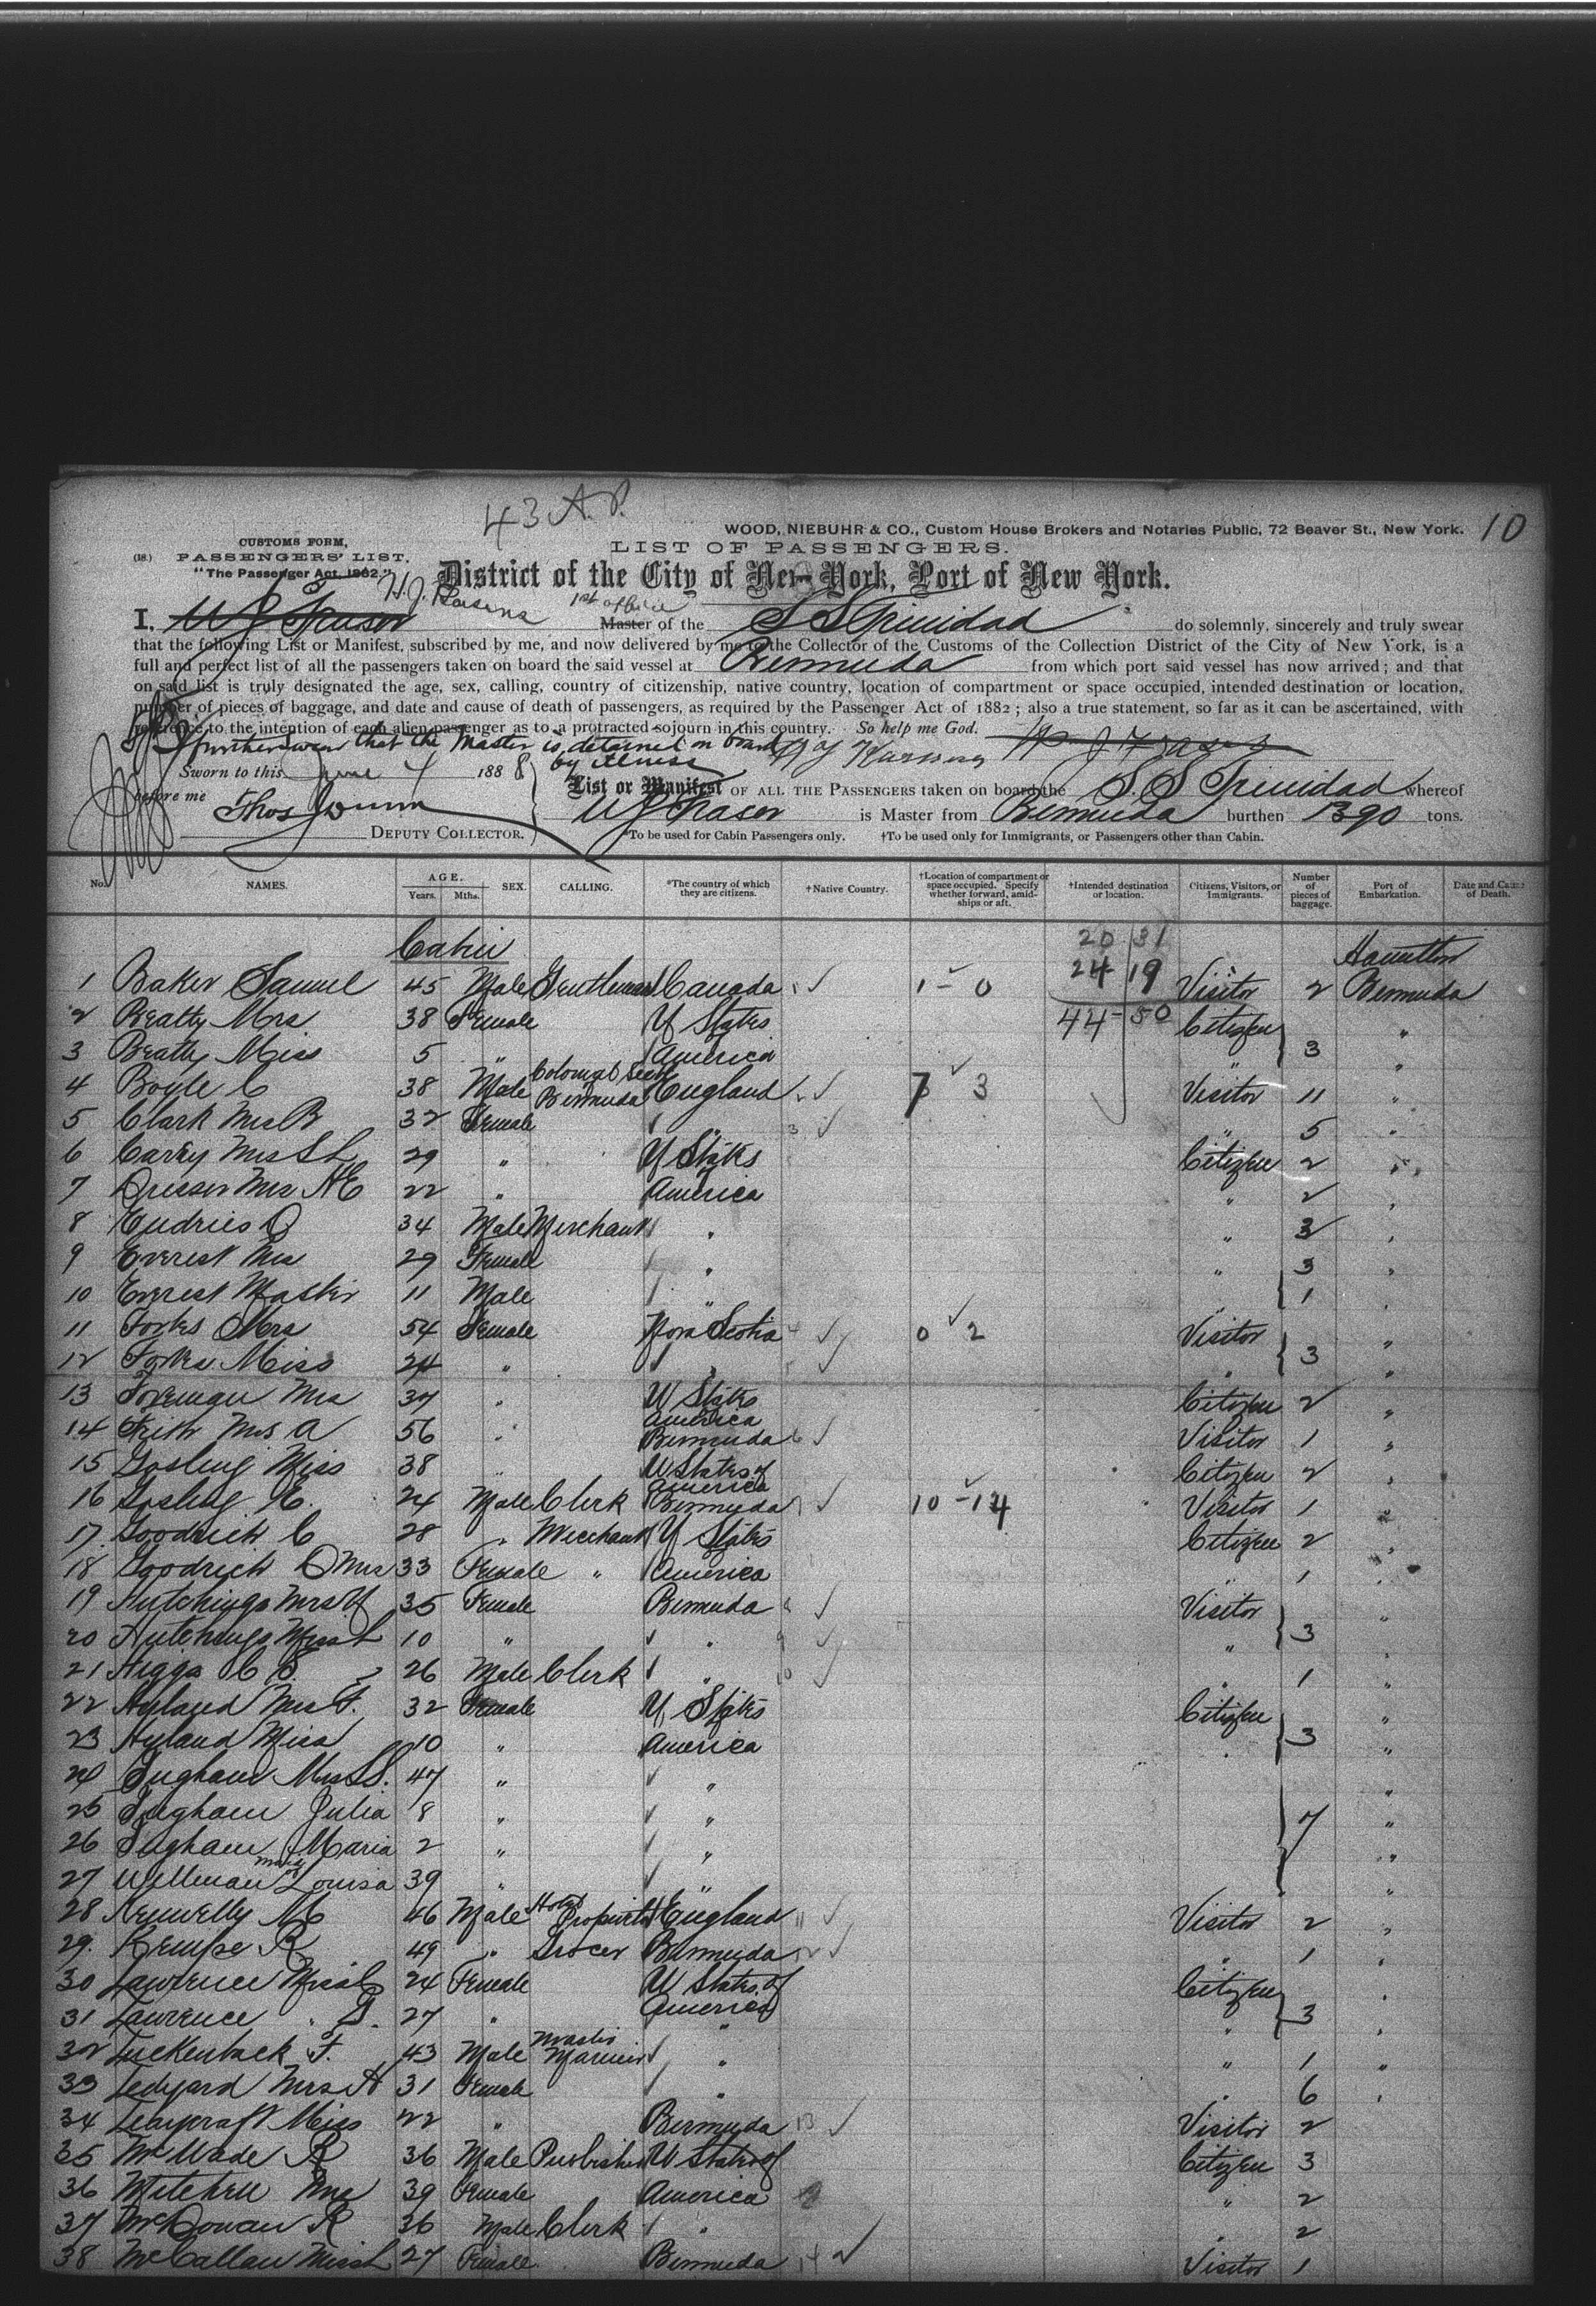 43 A. P.
WOOD, NIEBUHR & CO., Custom House Brokers and Notaries Public, 72 Beaver St., New York. 10
CUSTOMS FORM,
(18.) PASSENGERS' LIST.
"The Passenger Act, 1882."
LIST OF PASSENGERS.
District of the City of New York, Port of New York.
I, W J Fraser 1st officer Master of the S S Trinidad do solemnly, sincerely and truly swear
that the following List or Manifest, subscribed by me, and now delivered by me to the Collector of the Customs of the Collection District of the City of New York, is a
full and perfect list of all the passengers taken on board the said vessel at Bermuda from which port said vessel has now arrived; and that
on said list is truly designated the age, sex, calling, country of citizenship, native country, location of compartment or space occupied, intended destination or location,
number of pieces of baggage, and date and cause of death of passengers, as required by the Passenger Act of 1882; also a true statement, so far as it can be ascertained, with
reference to the intention of each alien passenger as to a protracted sojourn in this country. So help me God. W J Fraser
I further swear that the Master is detained on board
by illness
Sworn to this June 4 1888
before me
Thos
DEPUTY COLLECTOR.
List or Manifest OF ALL THE PASSENGERS taken on board the S. S Trinidad whereof
W J Fraser is Master from Bermuda burthen 1390 tons.
*To be used for Cabin Passengers only. †To be used only for Immigrants, or Passengers other than Cabin.
No. NAMES. AGE. Years. Mths. SEX. CALLING. *The country of which they are citizens. †Native Country. †Location of compartment or space occupied. Specify whether forward, amidships or aft. †Intended destination or location. Citizens, Visitors, or Immigrants. Number of pieces of baggage. Port of Embarkation. Date and Cause of Death.
Cabin 20 31 Hamilton
1 Baker Samuel 45 Male Gentleman Canada 1 ✓ 1 - 0 24 19 Visitor 2 Bermuda
2 Beatty Mrs 38 Female U States 44 - 50 Citizen "
3 Beatty Miss 5 " America " 3 "
4 Boyle C 38 Male Colonial Secy Bermuda England 2 ✓ 7 3 Visitor 11 "
5 Clark Mrs B 32 Female " 3 ✓ " 5 "
6 Carey Mrs S L 29 " U States Citizen 2 "
7 Dresser Mrs H E 22 " of America " 2 "
8 Endries O 34 Male Merchant " " 3 "
9 Everest Mrs 29 Female " " 3 "
10 Everest Master 11 Male " " 1 "
11 Forbes Mrs 54 Female Nova Scotia 4 ✓ 0 2 Visitor "
12 Forbes Miss 24 " " 5 ✓ " 3 "
13 Foreman Mrs 37 " U States America Citizen 2 "
14 Frith Mrs A 56 " Bermuda 6 ✓ Visitor 1 "
15 Gosling Miss 38 " U States of America Citizen 2 "
16 Gosling E. 24 Male Clerk Bermuda 7 ✓ 10 - 14 Visitor 1 "
17. Goodrich C 28 " Merchant U States Citizen 2 "
18 Goodrich Mrs 33 Female " of America " 1 "
19 Hutchings Mrs 35 Female Bermuda 8 ✓ Visitor "
20 Hutchings Miss L 10 " " 9 ✓ " 3 "
21 Higgs C S. 26 Male Clerk " 10 ✓ " 1 "
22 Hyland Mrs F. 32 Female U, States Citizen "
23 Hyland Miss 10 " of America " 3 "
24 Ingham Mrs S. 47 " " "
25 Ingham Julia 8 " " 7 "
26 Ingham Maria 2 " " "
27 Wellman maid Louisa 39 " " "
28 Kennelly M 46 Male Hotel Proprietor England 11 ✓ Visitor 2 "
29. Kempe R 49 " Grocer Bermuda 12 ✓ " 1 "
30 Lawrence Miss C 24 Female U States of Citizen "
31 Lawrence " S. 27 " America " 3 "
32 Luckenback F. 43 Male Master Mariner " " 1 "
33 Ledyard Mrs A 31 Female " " 6 "
34 Leaycraft Miss 22 " Bermuda 13 ✓ Visitor 2
35 McWade R 36 Male Publisher U States of Citizen 3
36 Mitchell Mrs 39 Female America " 2
37 McGowan R 36 Male Clerk " " 2
38 McCallan Miss L 27 Female Bermuda 14 ✓ Visitor 1